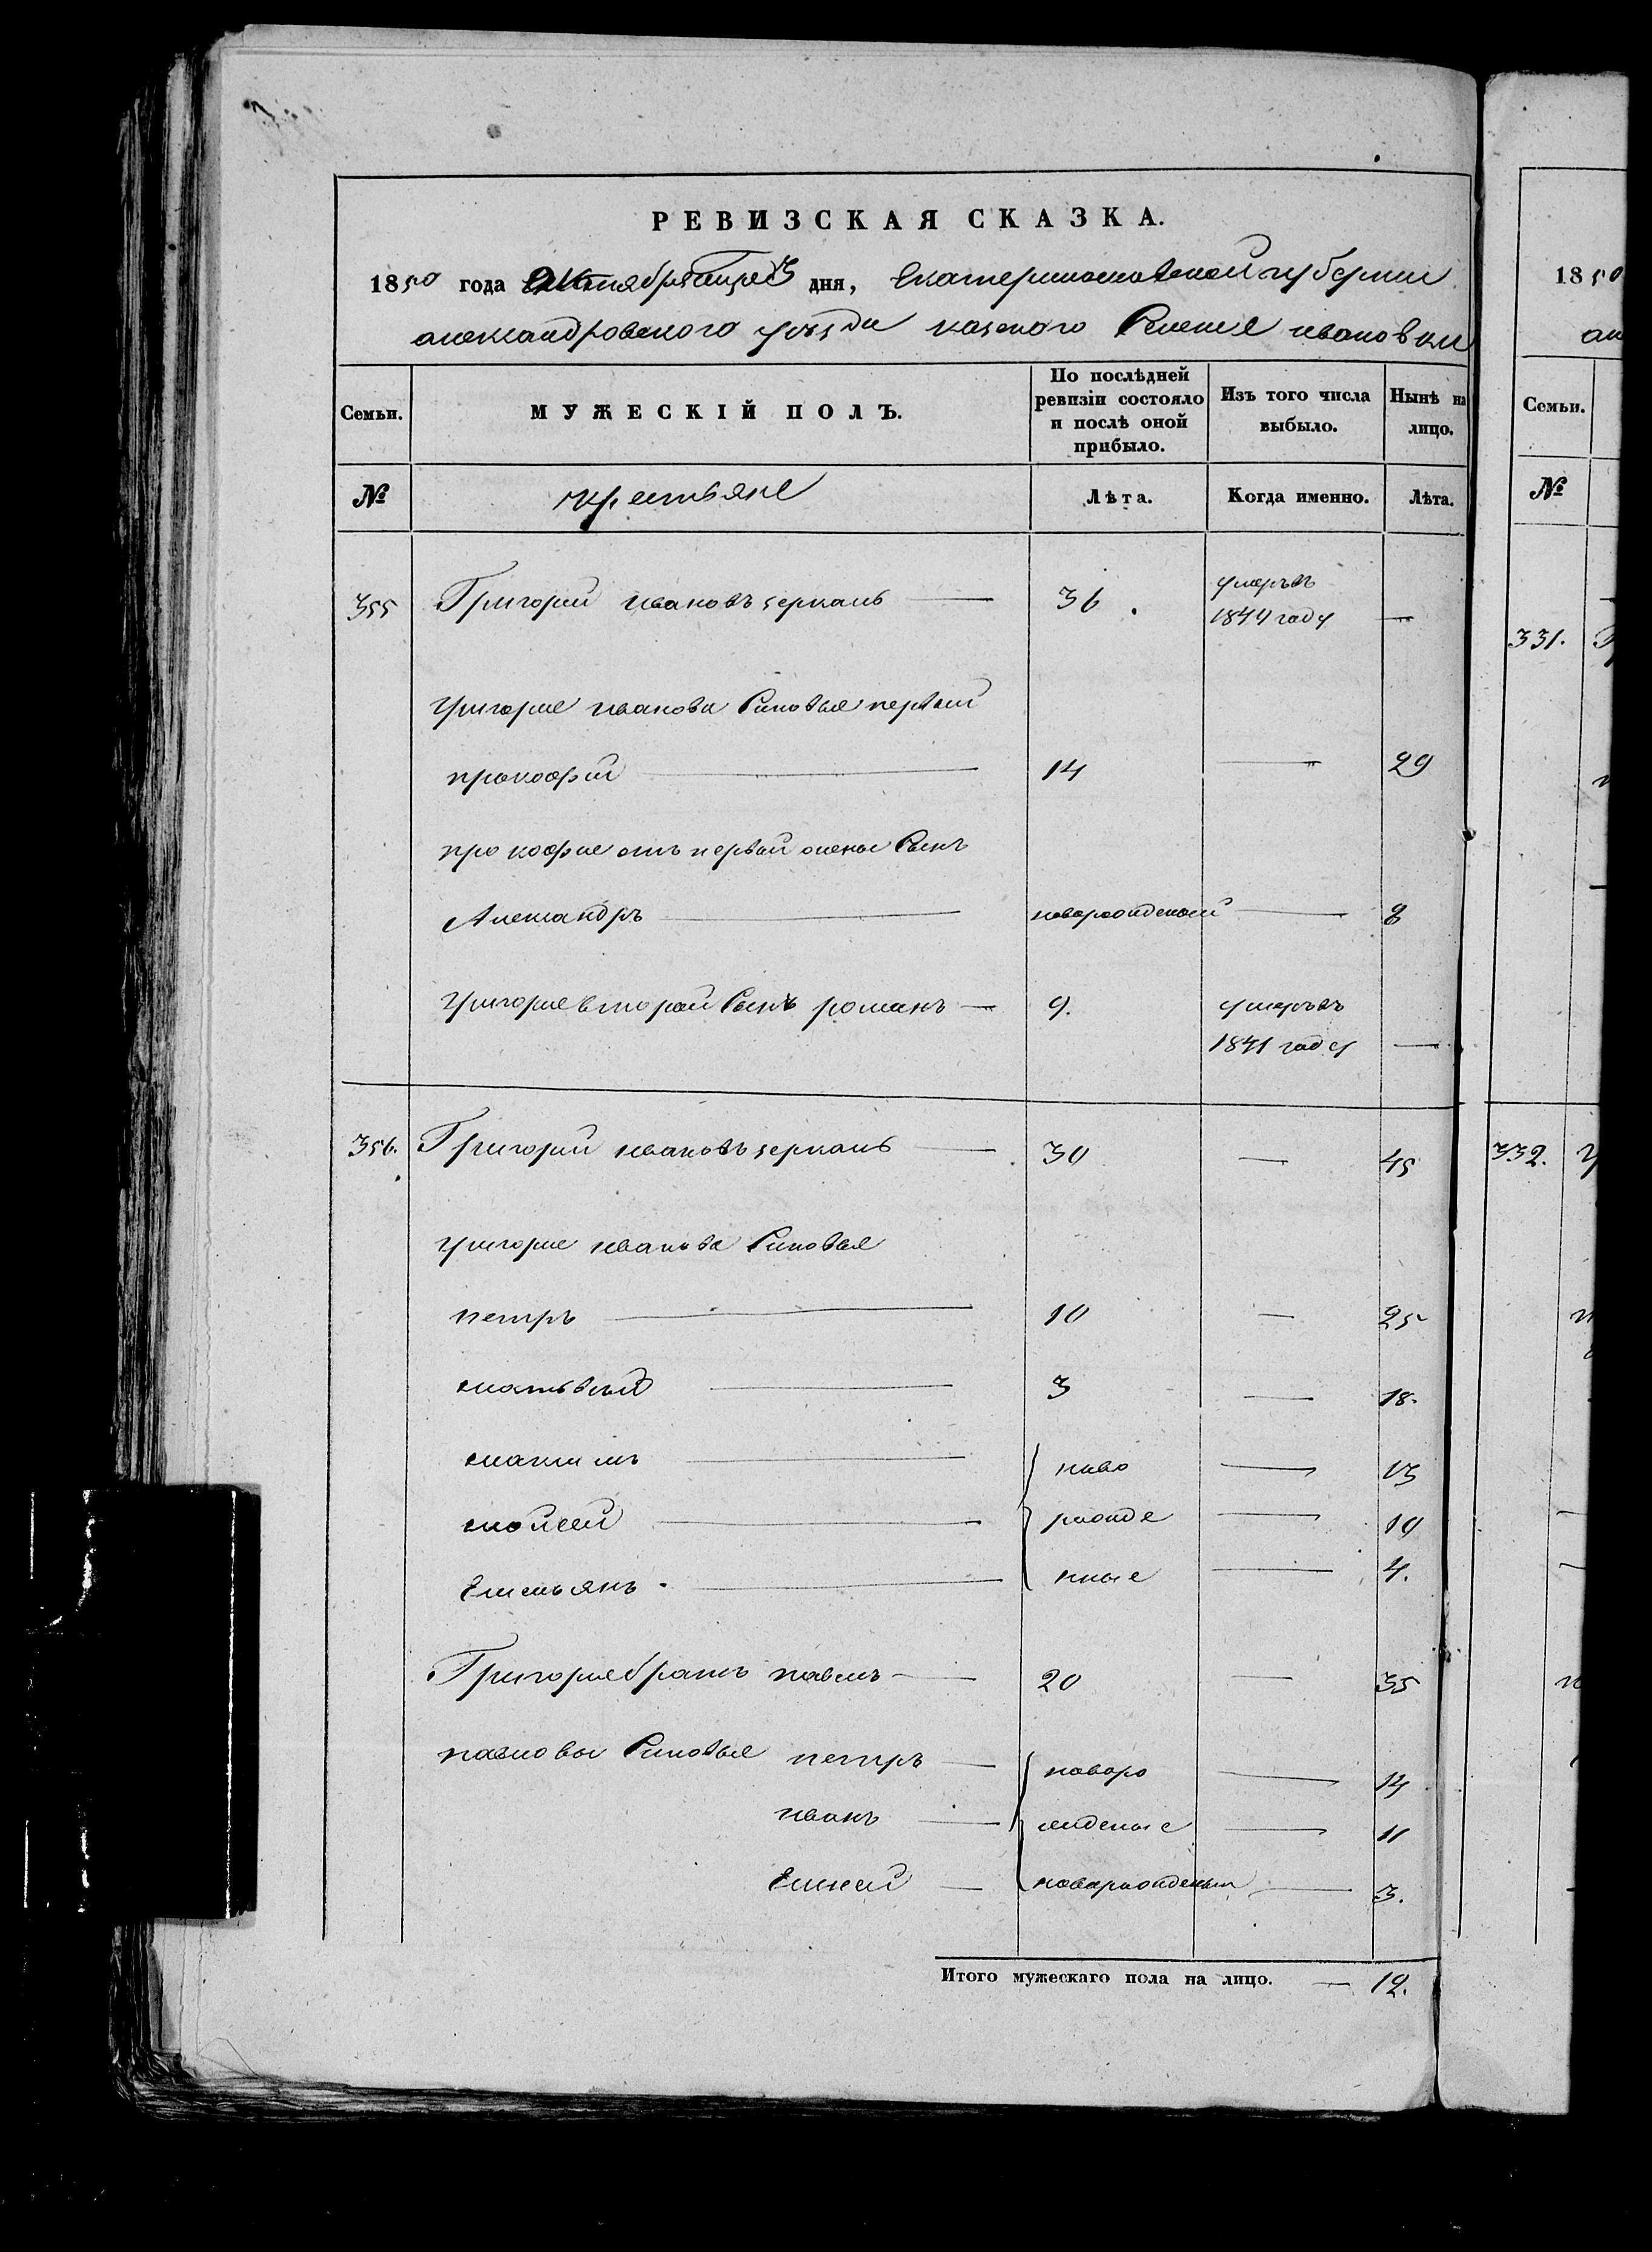 РЕВИЗСКАЯ СКАЗКА.
1850 года Октября дня, Екатеринославской губернии
александровского уезда казеного Селенія ивановки
Семьи. МУЖЕСКІЙ ПОЛЪ. По послѣдней ревизіи состояло и послѣ оной прибыло. Изъ того числа выбыло. Нынѣ на лицо.
№ крестьяне Лѣта. Когда именно. Лѣта.
355 Григорий ивановъ зеркаль — 36. умеръ въ 1844 году —
григорие иванова Синовья первый
прокофий — 14 — 29
прокофие отъ первой жены Сынъ
Александръ — новорожденый — 8
григорие второй Сынъ романъ — 9. умеръ въ 1841 году —
356. Григорий ивановъ зеркаль — 30 — 45
григорие иванова Синовья
петръ — 10 — 25
матьвий — 3 — 18.
максимъ — ново — 13
мойсей — рожде — 10
Емельянъ — ные — 4.
Григорие братъ павелъ — 20 — 35
павловы Синовья петръ — новоро — 14
иванъ — жденые — 11
— новорожденый — 3.
Итого мужескаго пола на лицо. — 12.
1850
Семьи.
№
331.
332.